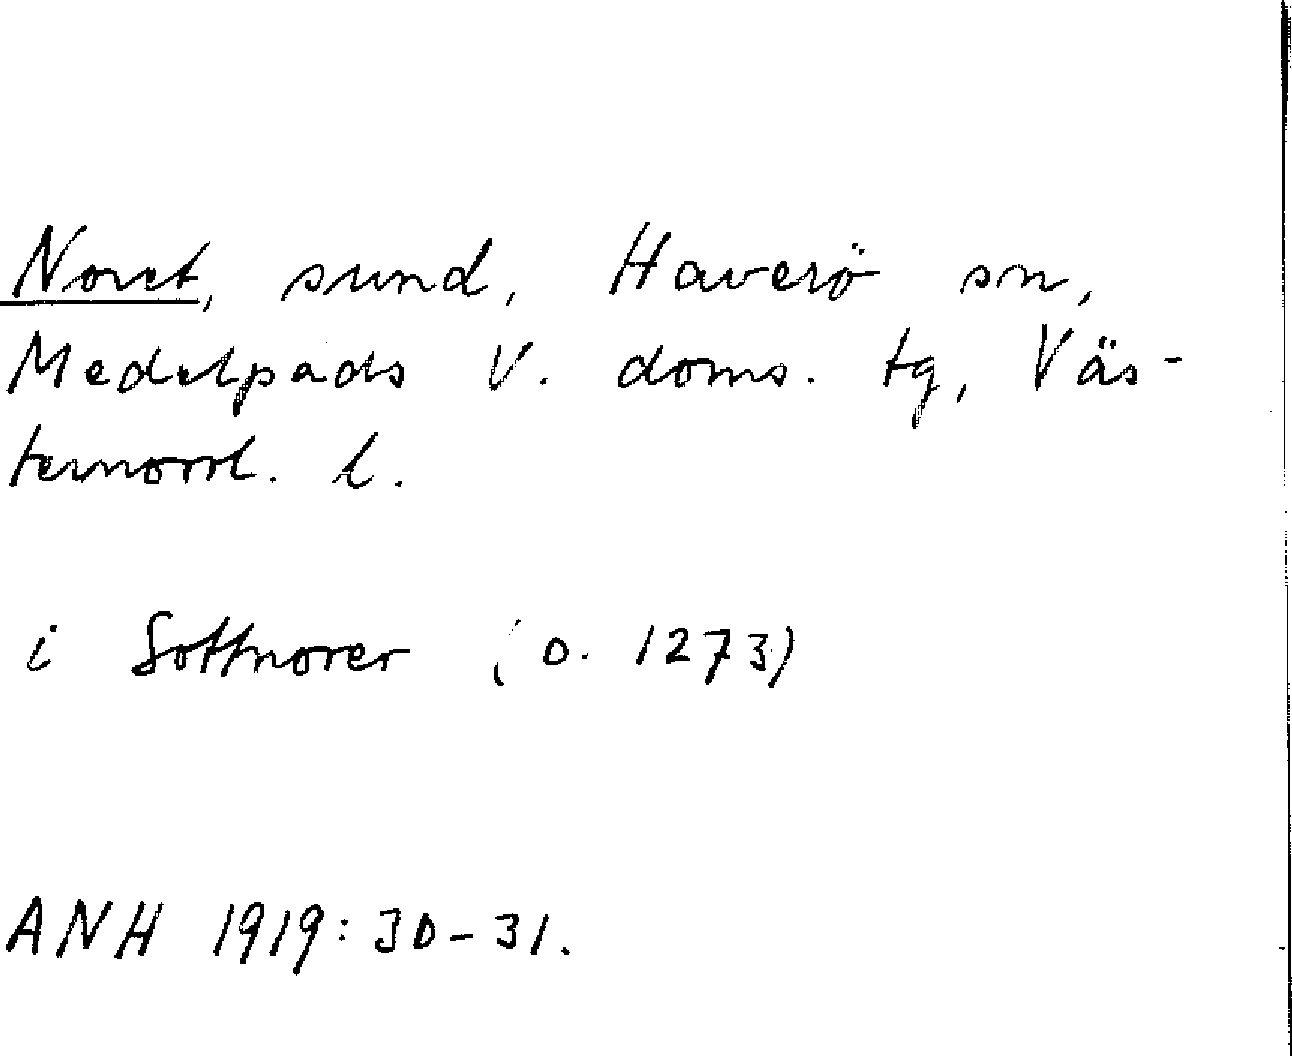 Noret, sund, Haverö sn,
Medelpads V. doms. tg, Väs-
ternorrl. l.
i Sottnorer (o. 1273)
ANH 1919: 30-31.